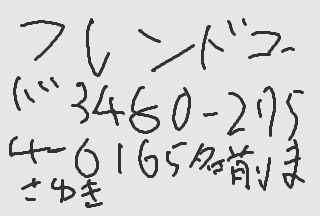 フレンドコー
ド3460-275
4-0165名前はま
さゆき